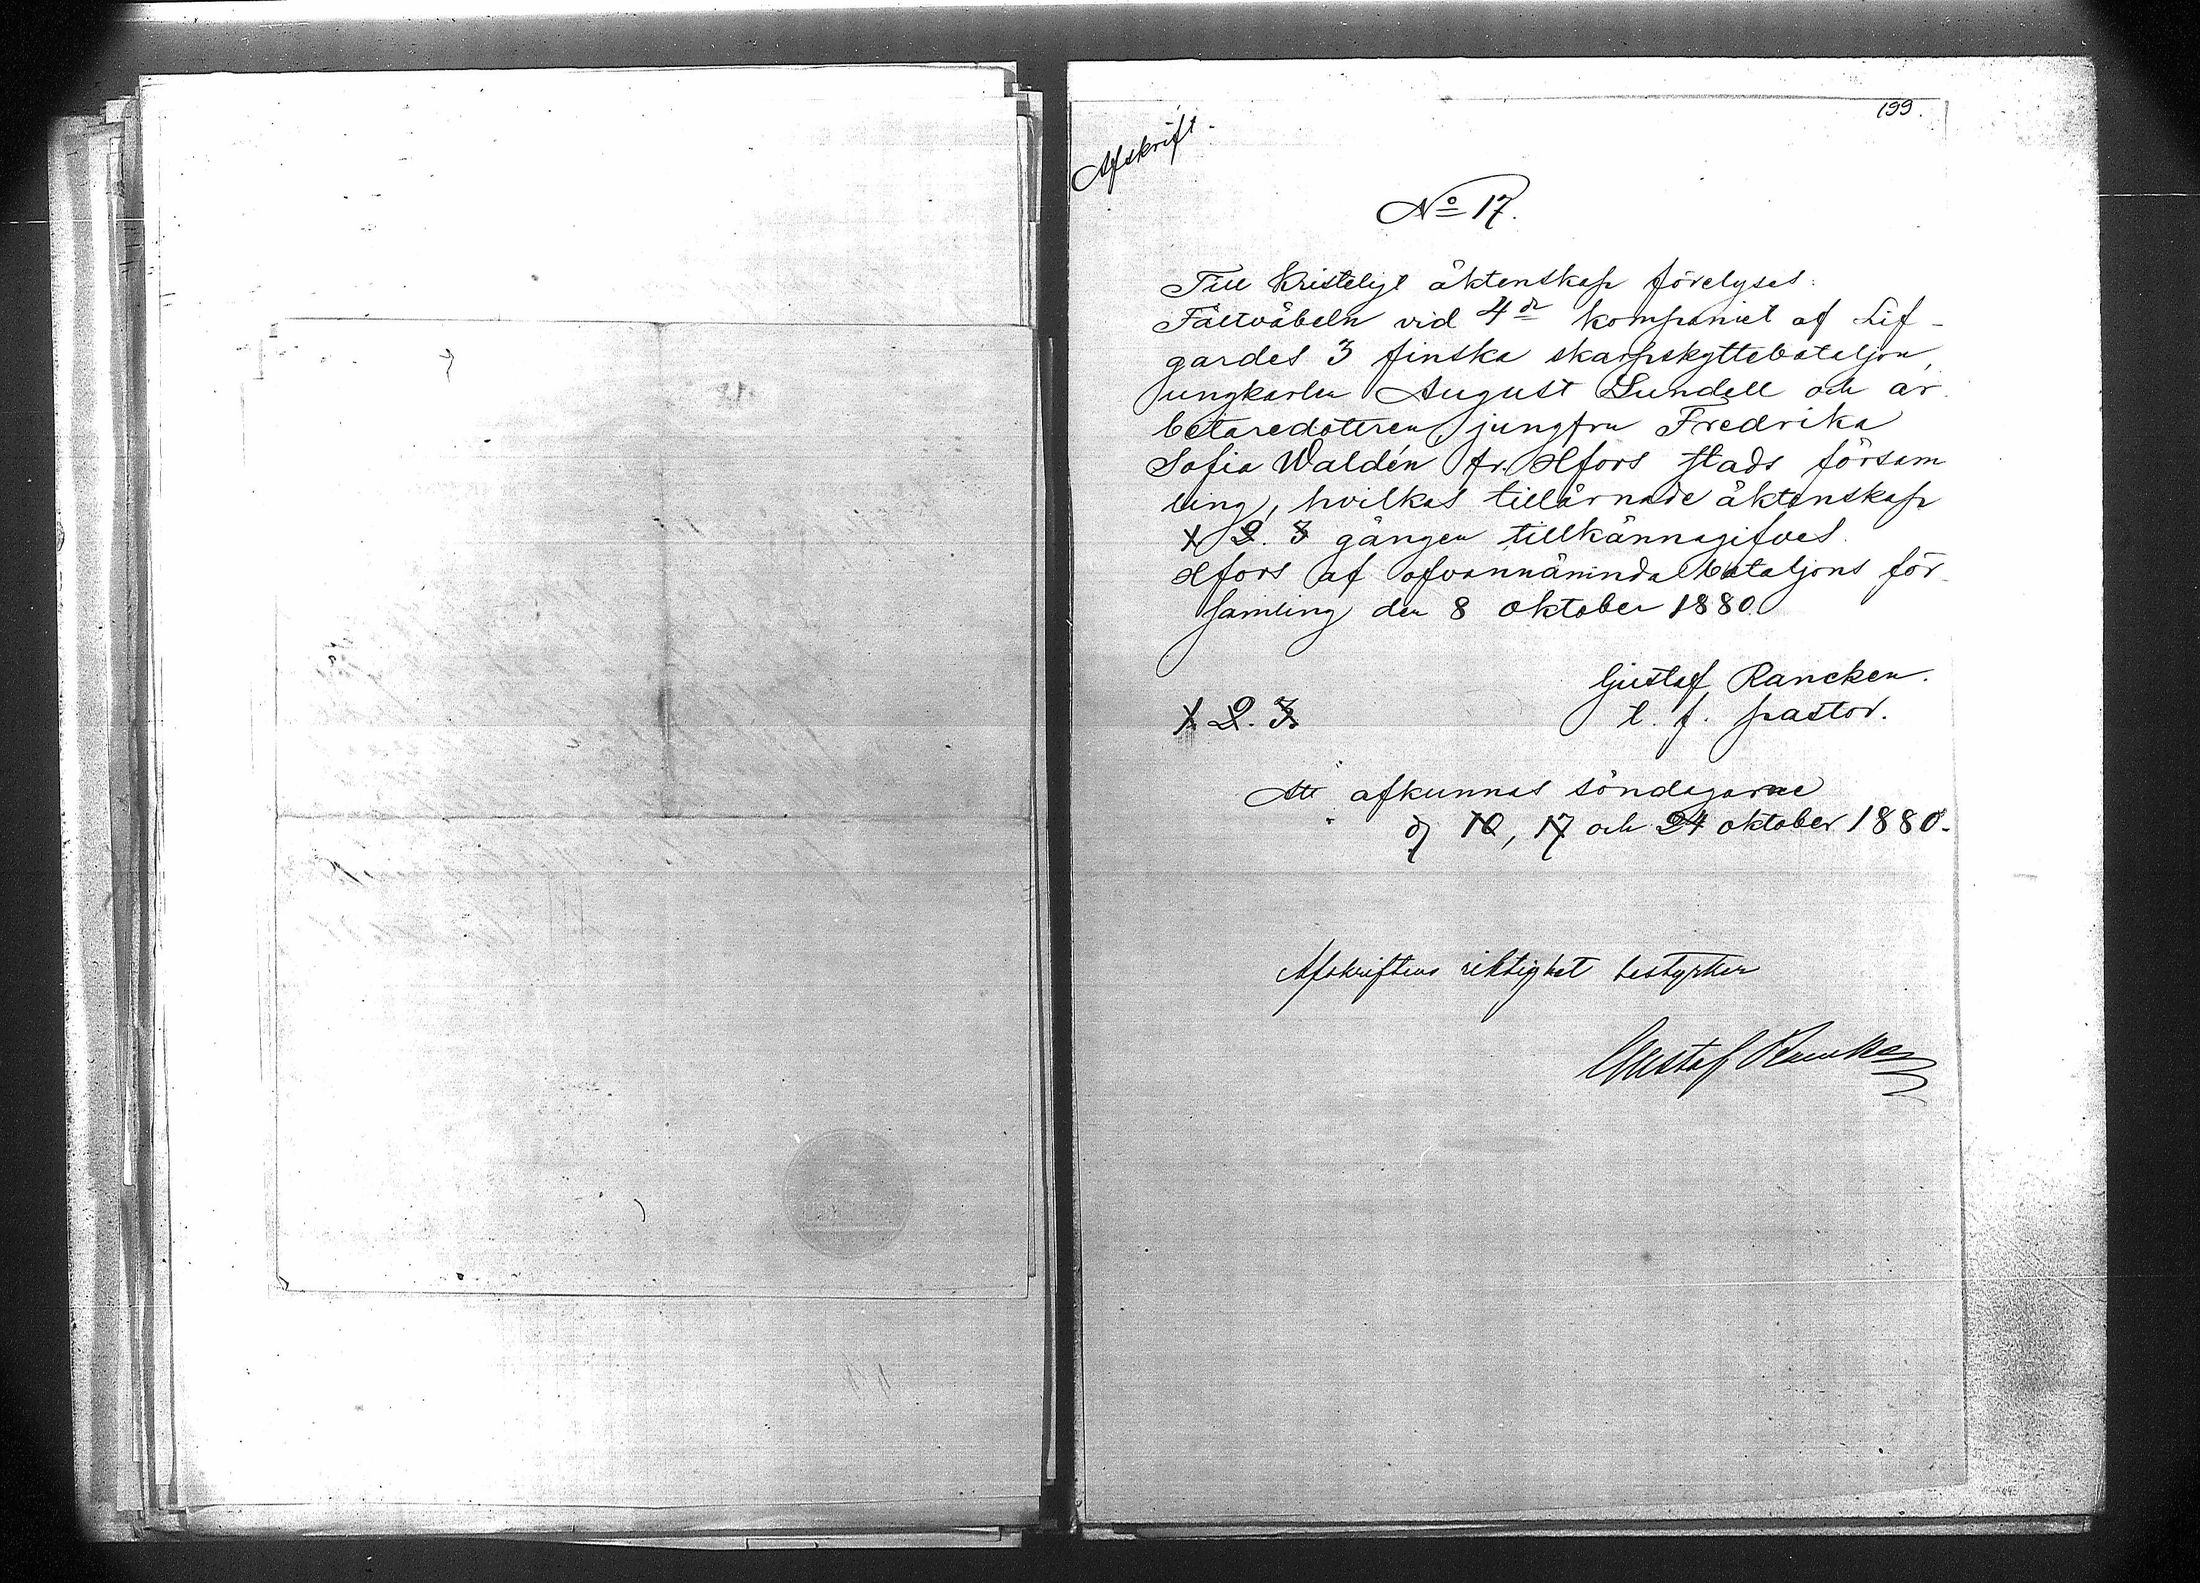 199.
Afskrift.
No 17.
Till kristeligt äktenskap förelyses:
Fältväbeln vid 4de kompaniet af Lif-
gardes 3 finska skarpskyttebataljon,
ungkarlen August Lundell och ar-
betaredottren, jungfru Fredrika
Sofia Waldén fr. Hfors stads försam
ling, hvilkas tillärnade äktenskap
1. 2. 3 gången tillkännagifves.
Hfors af ofvannämnda bataljons för-
samling den 8 oktober 1880.
Gustaf Rancken.
t. f. pastor.
1. 2. 3.
Att afkunnas söndagarne
d. 10, 17 och 24 oktober 1880.
Afskriftens riktighet bestyrker
Gustaf Rancken